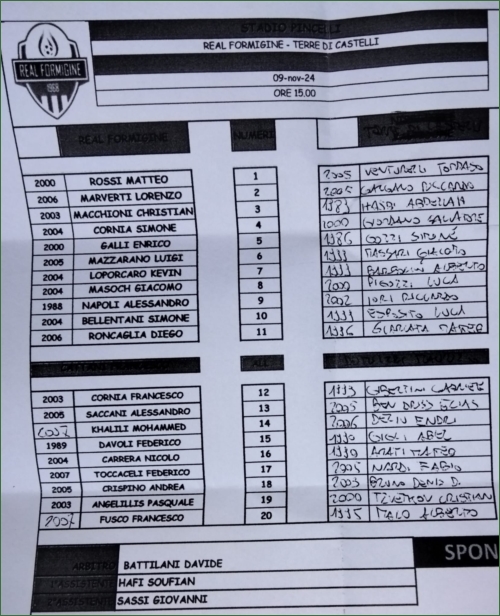 STADIO PINCELLI
REAL FORMIGINE - TERRE DI CASTELLI
REAL FORMIGINE
1968
09-nov-24
ORE 15.00
REAL FORMIGINE NUMERI
2000 ROSSI MATTEO 1 2005 VENTURELLI TOMMASO
2006 MARVERTI LORENZO 2 2005 GALGANO RICCARDO
2003 MACCHIONI CHRISTIAN 3 1983 HASBI
2004 CORNIA SIMONE 4 2000 GIORDANO SALVATORE
2000 GALLI ENRICO 5 1986 GOZZI SIMONE
2005 MAZZARANO LUIGI 6 1993 MASSARI GIACOMO
2004 LOPORCARO KEVIN 7 1993 ALBERTO
2004 MASOCH GIACOMO 8 2000 LUCA
1988 NAPOLI ALESSANDRO 9 2002 IORI RICCARDO
2004 BELLENTANI SIMONE 10 1999 ESPOSITO LUCA
2006 RONCAGLIA DIEGO 11 1996
2003 CORNIA FRANCESCO 12 1993
2005 SACCANI ALESSANDRO 13 2005 BEN DRISS ELIAS
2007 KHALILI MOHAMMED 14 2006 ENDRI
1989 DAVOLI FEDERICO 15 1990 ABEL
2004 CARRERA NICOLO 16 1990 MATTEO
2007 TOCCACELI FEDERICO 17 2005 NARDI FABIO
2005 CRISPINO ANDREA 18 2003 BRUNO DENIS D.
2003 ANGELILLIS PASQUALE 19 2000 CRISTIAN
2007 FUSCO FRANCESCO 20 1995 ALBERTO
ARBITRO BATTILANI DAVIDE
1°ASSISTENTE HAFI SOUFIAN
2°ASSISTENTE SASSI GIOVANNI
SPON